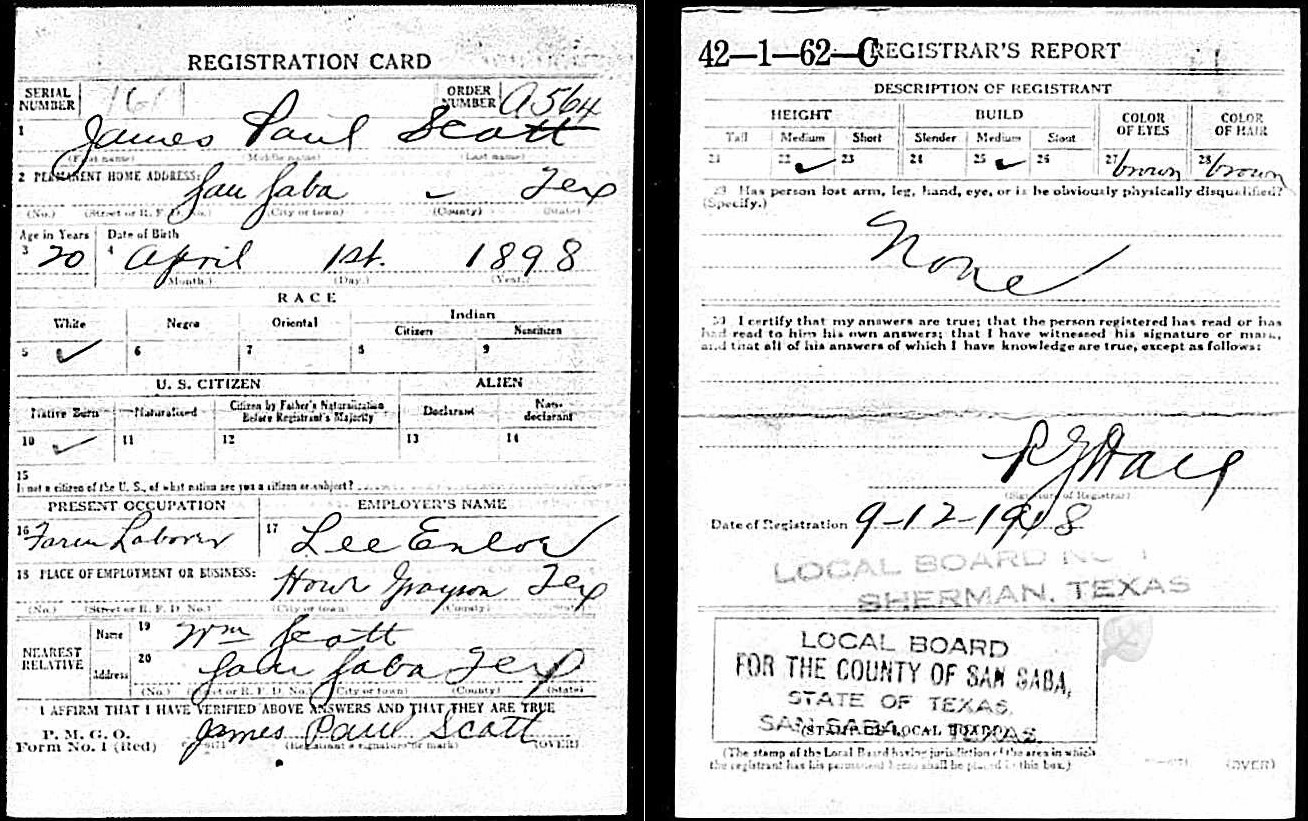 REGISTRATION CARD
SERIAL NUMBER
ORDER NUMBER A564
1 James Paul Scott
(First name) (Middle name) (Last name)
2 PERMANENT HOME ADDRESS: San Saba - Tex
(No.) (Street or R. F. D. No.) (City or town) (County) (State)
Age in Years Date of Birth
3 20 4 April 1st. 1898
(Month.) (Day.) (Year.)
RACE
White Negro Oriental Indian
Citizen Noncitizen
5 ✓ 6 7 8 9
U. S. CITIZEN ALIEN
Native Born Naturalized Citizen by Father's Naturalization Before Registrant's Majority Declarant Non-declarant
10 ✓ 11 12 13 14
15
If not a citizen of the U. S., of what nation are you a citizen or subject?
PRESENT OCCUPATION EMPLOYER'S NAME
16 Farm Laborer 17 Lee Enloe
18 PLACE OF EMPLOYMENT OR BUSINESS: Howe Grayson Tex
(No.) (Street or R. F. D. No.) (City or town) (County) (State)
NEAREST RELATIVE
Name 19 Wm Scott
Address 20 San Saba Tex
(No.) (Street or R. F. D. No.) (City or town) (County) (State)
I AFFIRM THAT I HAVE VERIFIED ABOVE ANSWERS AND THAT THEY ARE TRUE
P. M. G. O.
Form No. 1 (Red) James Paul Scott
(Registrant's signature or mark) (OVER)
42-1-62-C REGISTRAR'S REPORT
DESCRIPTION OF REGISTRANT
HEIGHT BUILD COLOR OF EYES COLOR OF HAIR
Tall Medium Short Slender Medium Stout
21 22 ✓ 23 24 25 ✓ 26 27 brown 28 brown
29 Has person lost arm, leg, hand, eye, or is he obviously physically disqualified?
(Specify.)
None
30 I certify that my answers are true; that the person registered has read or has
had read to him his own answers; that I have witnessed his signature or mark,
and that all of his answers of which I have knowledge are true, except as follows:
(Signature of Registrar)
Date of Registration 9-12-1918
LOCAL BOARD NO 1
SHERMAN, TEXAS
LOCAL BOARD
FOR THE COUNTY OF SAN SABA,
STATE OF TEXAS,
SAN SABA, TEXAS.
(STAMP OF LOCAL BOARD)
(The stamp of the Local Board having jurisdiction of the area in which
the registrant has his permanent home shall be placed in this box.)
(OVER)